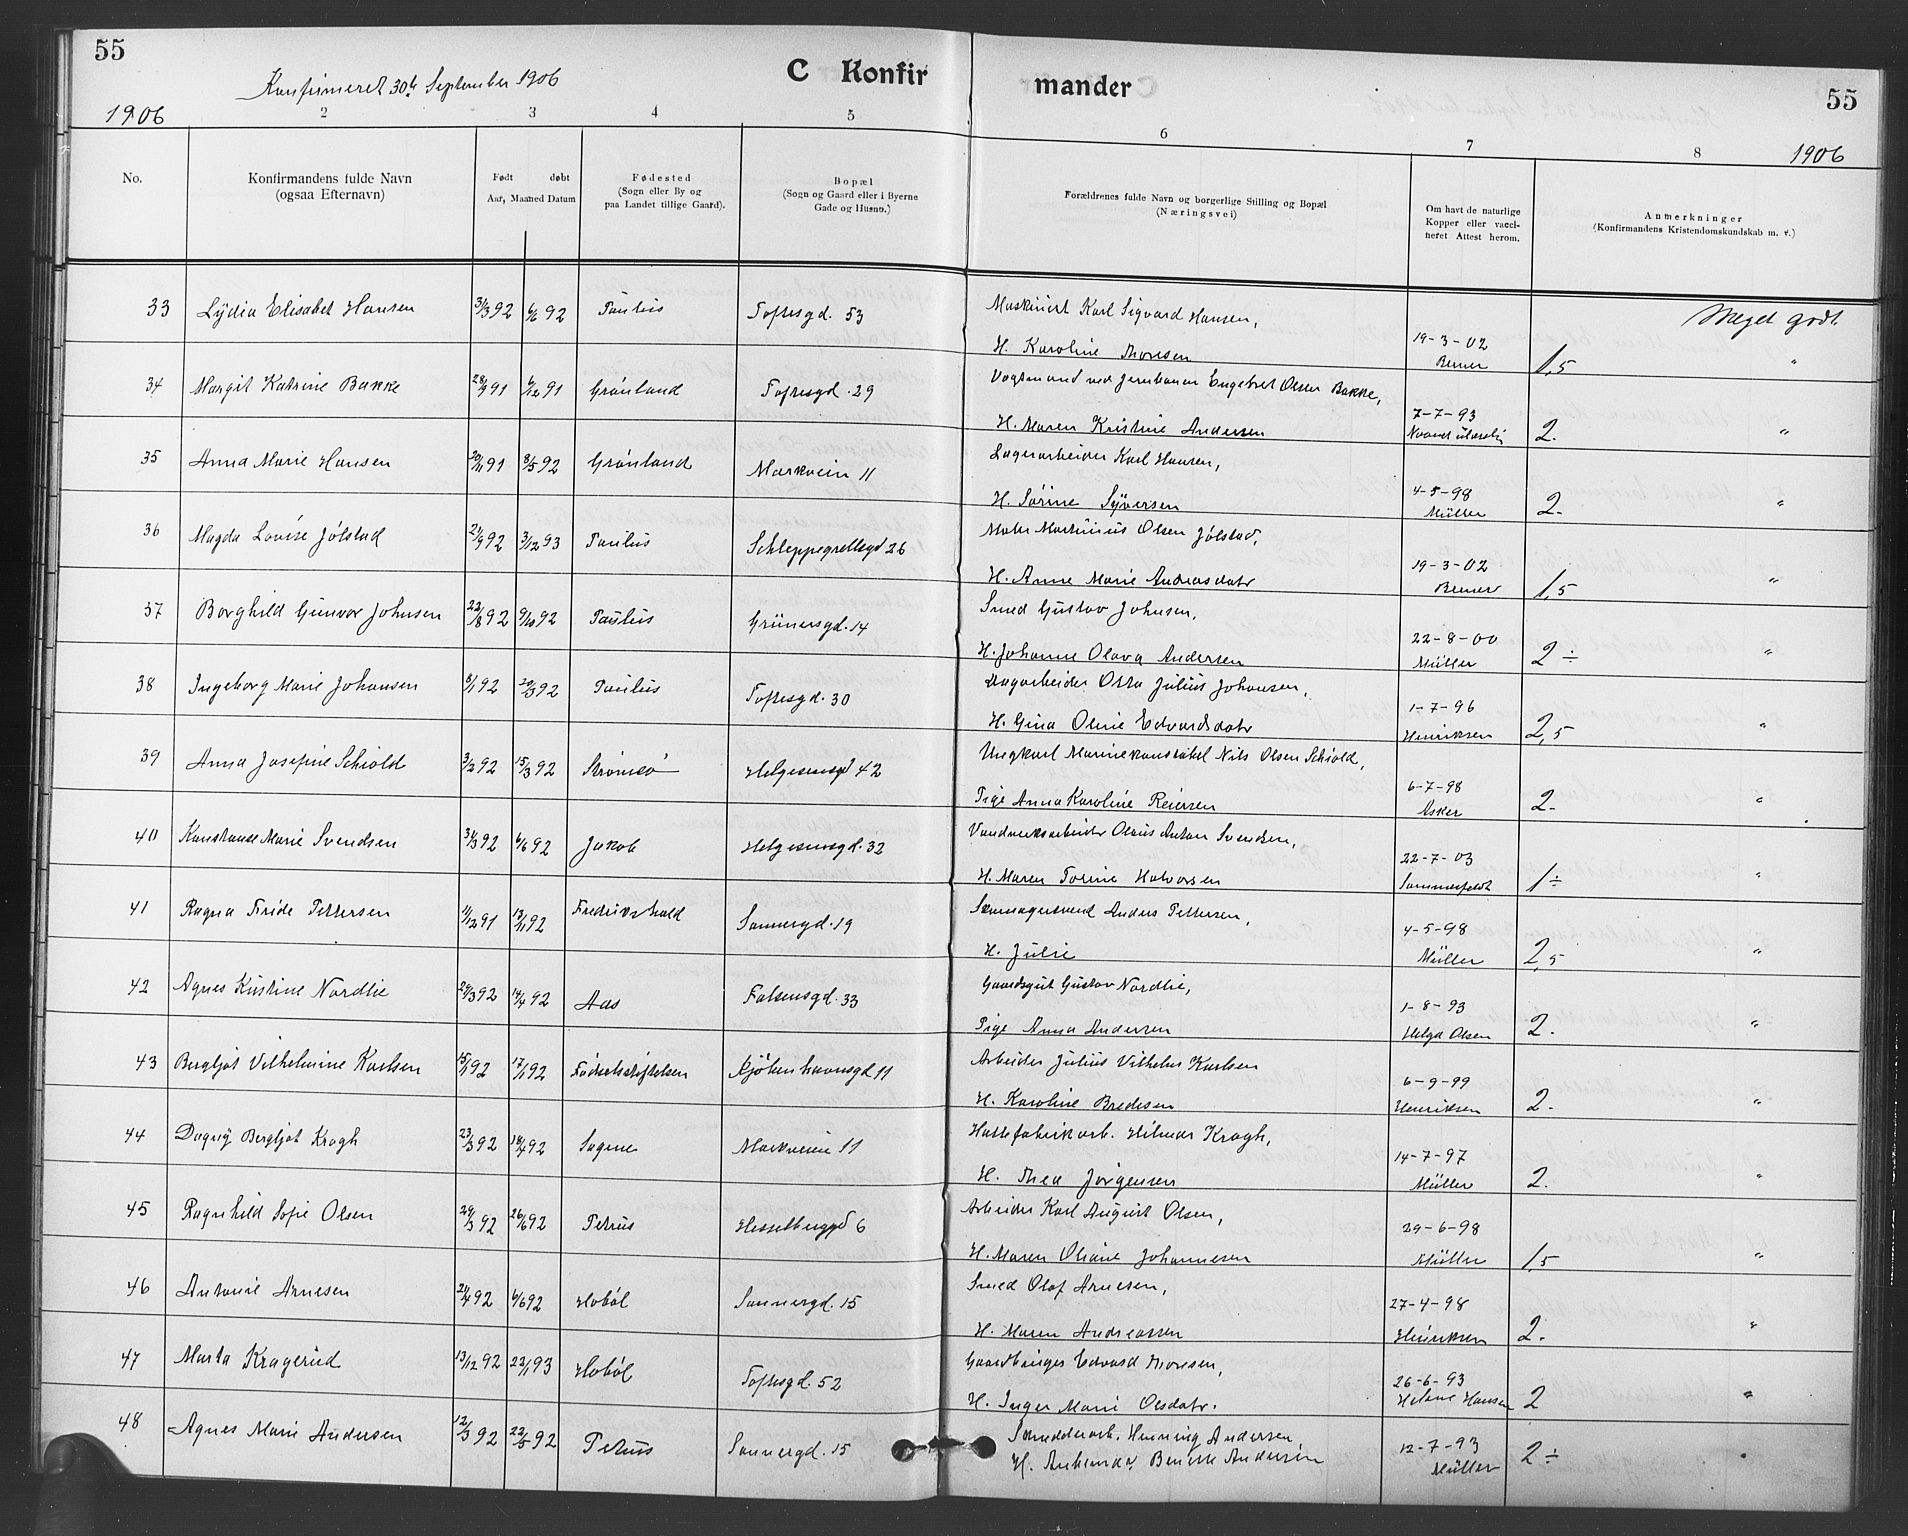 55
Konfirmeret 30te September 1906
C Konfir
mander
55
1906
2
3
4
5
6
7
8
1906
No.
Konfirmandens fulde Navn
(ogsaa Efternavn)
Født døbt
Aar, Maaned Datum
Fødested
(Sogn eller By og
paa Landet tillige Gaard).
Bopæl
(Sogn og Gaard eller i Byerne
Gade og Husno.)
Forældrenes fulde Navn og borgerlige Stilling og Bopæl
(Næringsvei)
Om havt de naturlige
Kopper eller vacci-
neret Attest herom.
Anmerkninger
(Konfirmandens Kristendomskundskab m. v.)
33 Lydia Elisabet Hansen 31/3 92 6/6 92 Paulus Toftesgd. 53 Maskinist Karl Sigvard Hansen, Meget godt.
H. Karoline Thoresen 19-3-02 1,5 "
34 Margit Katrine Bakke 28/9 91 6/12 91 Grønland Toftesgd. 29 Vogtmand ved Jernbanen Engebret Olsen Bakke,
H. Maren Kristine Andersen 7-7-93 2. "
35 Anna Marie Hansen 20/11 91 8/5 92 Grønland Markvein 11 Lagerarbeider Karl Hansen,
H. Sørine Syversen 4-5-98 Müller 2. "
36 Magda Lovise Jølstad 21/9 92 3/12 93 Paulus Schleppegrellsgd 26 Maler Martinius Olsen Jølstad,
H. Anne Marie Andreasdatr 19-3-02 1,5 "
37 Borghild Gunvor Johnsen 22/8 92 9/10 92 Paulus Grünersgd. 14 Smed Gustav Johnsen,
H. Johanne Olava Andersen 22-8-00 Müller 2 ÷ "
38 Ingeborg Marie Johansen 8/1 92 20/3 92 Paulus Toftesgd. 30 Dagarbeider Otto Julius Johansen,
H. Gina Oline Edvardsdatr 1-7-96 Henriksen 2,5 "
39 Anna Josefine Schiold 3/2 92 15/3 92 Strømsø Helgesensgd 42 Ungkarl Marinekonstabel Nils Olsen Schiold,
Pige Anna Karoline Reiersen 6-7-98 Asker 2. "
40 Konstanse Marie Svendsen 31/3 92 6/6 92 Jakob Helgesensgd. 32 Vandverksarbeider Olaus Anton Svendsen,
H. Maren Torine Halvorsen 22-7-03 Sommerfeldt 1 ÷ "
41 Ragna Fride Pettersen 11/12 91 13/1 92 Fredrikshald Sannergd. 19 Skomagersvend Anders Pettersen,
H. Julie 4-5-98 Müller 2,5 "
42 Agnes Kristine Nordlie 29/3 92 14/4 92 Aas Falsensgd. 33 Gaardsgut Gustav Nordlie,
Pige Anna Andersen 1-8-93 Helga Olsen 2. "
43 Bergljot Vilhelmine Karlsen 15/1 92 17/1 92 Fødselsstiftelsen Kjøbenhavnsgd 11 Arbeider Julius Vilhelm Karlsen
H. Karoline Bredesen 6-9-99 Henriksen 2. "
44 Dagny Bergljot Kragh 23/3 92 18/4 92 Sagene Markveien 11 Hattefabrikarb. Hilmar Kragh,
H. Thea Jørgensen 14-7-97 Müller 2. "
45 Ragnhild Sofie Olsen 29/3 92 26/6 92 Petrus Hesselberggd 6 Arbeider Karl August Olsen,
H. Maren Oliane Johannesen 29-6-98 Müller 1,5 "
46 Antonie Arnesen 21/4 92 6/6 92 Hobøl Sannergd. 15 Smed Olof Arnesen,
H. Maren Andreassen 27-4-98 Henriksen 2. "
47 Marta Kragerud 13/12 92 22/1 93 Hobøl Toftesgd. 52 Gaardbruger Edvard Thoresen,
H. Inger Marie Olsdatr. 26-6-93 Helene Hansen 2 "
48 Agnes Marie Andersen 12/3 92 22/5 92 Petrus Sannergd. 15 Smedderarb. Henning Andersen
H. Benette Andersen 12-7-93 Müller 2 ÷ "